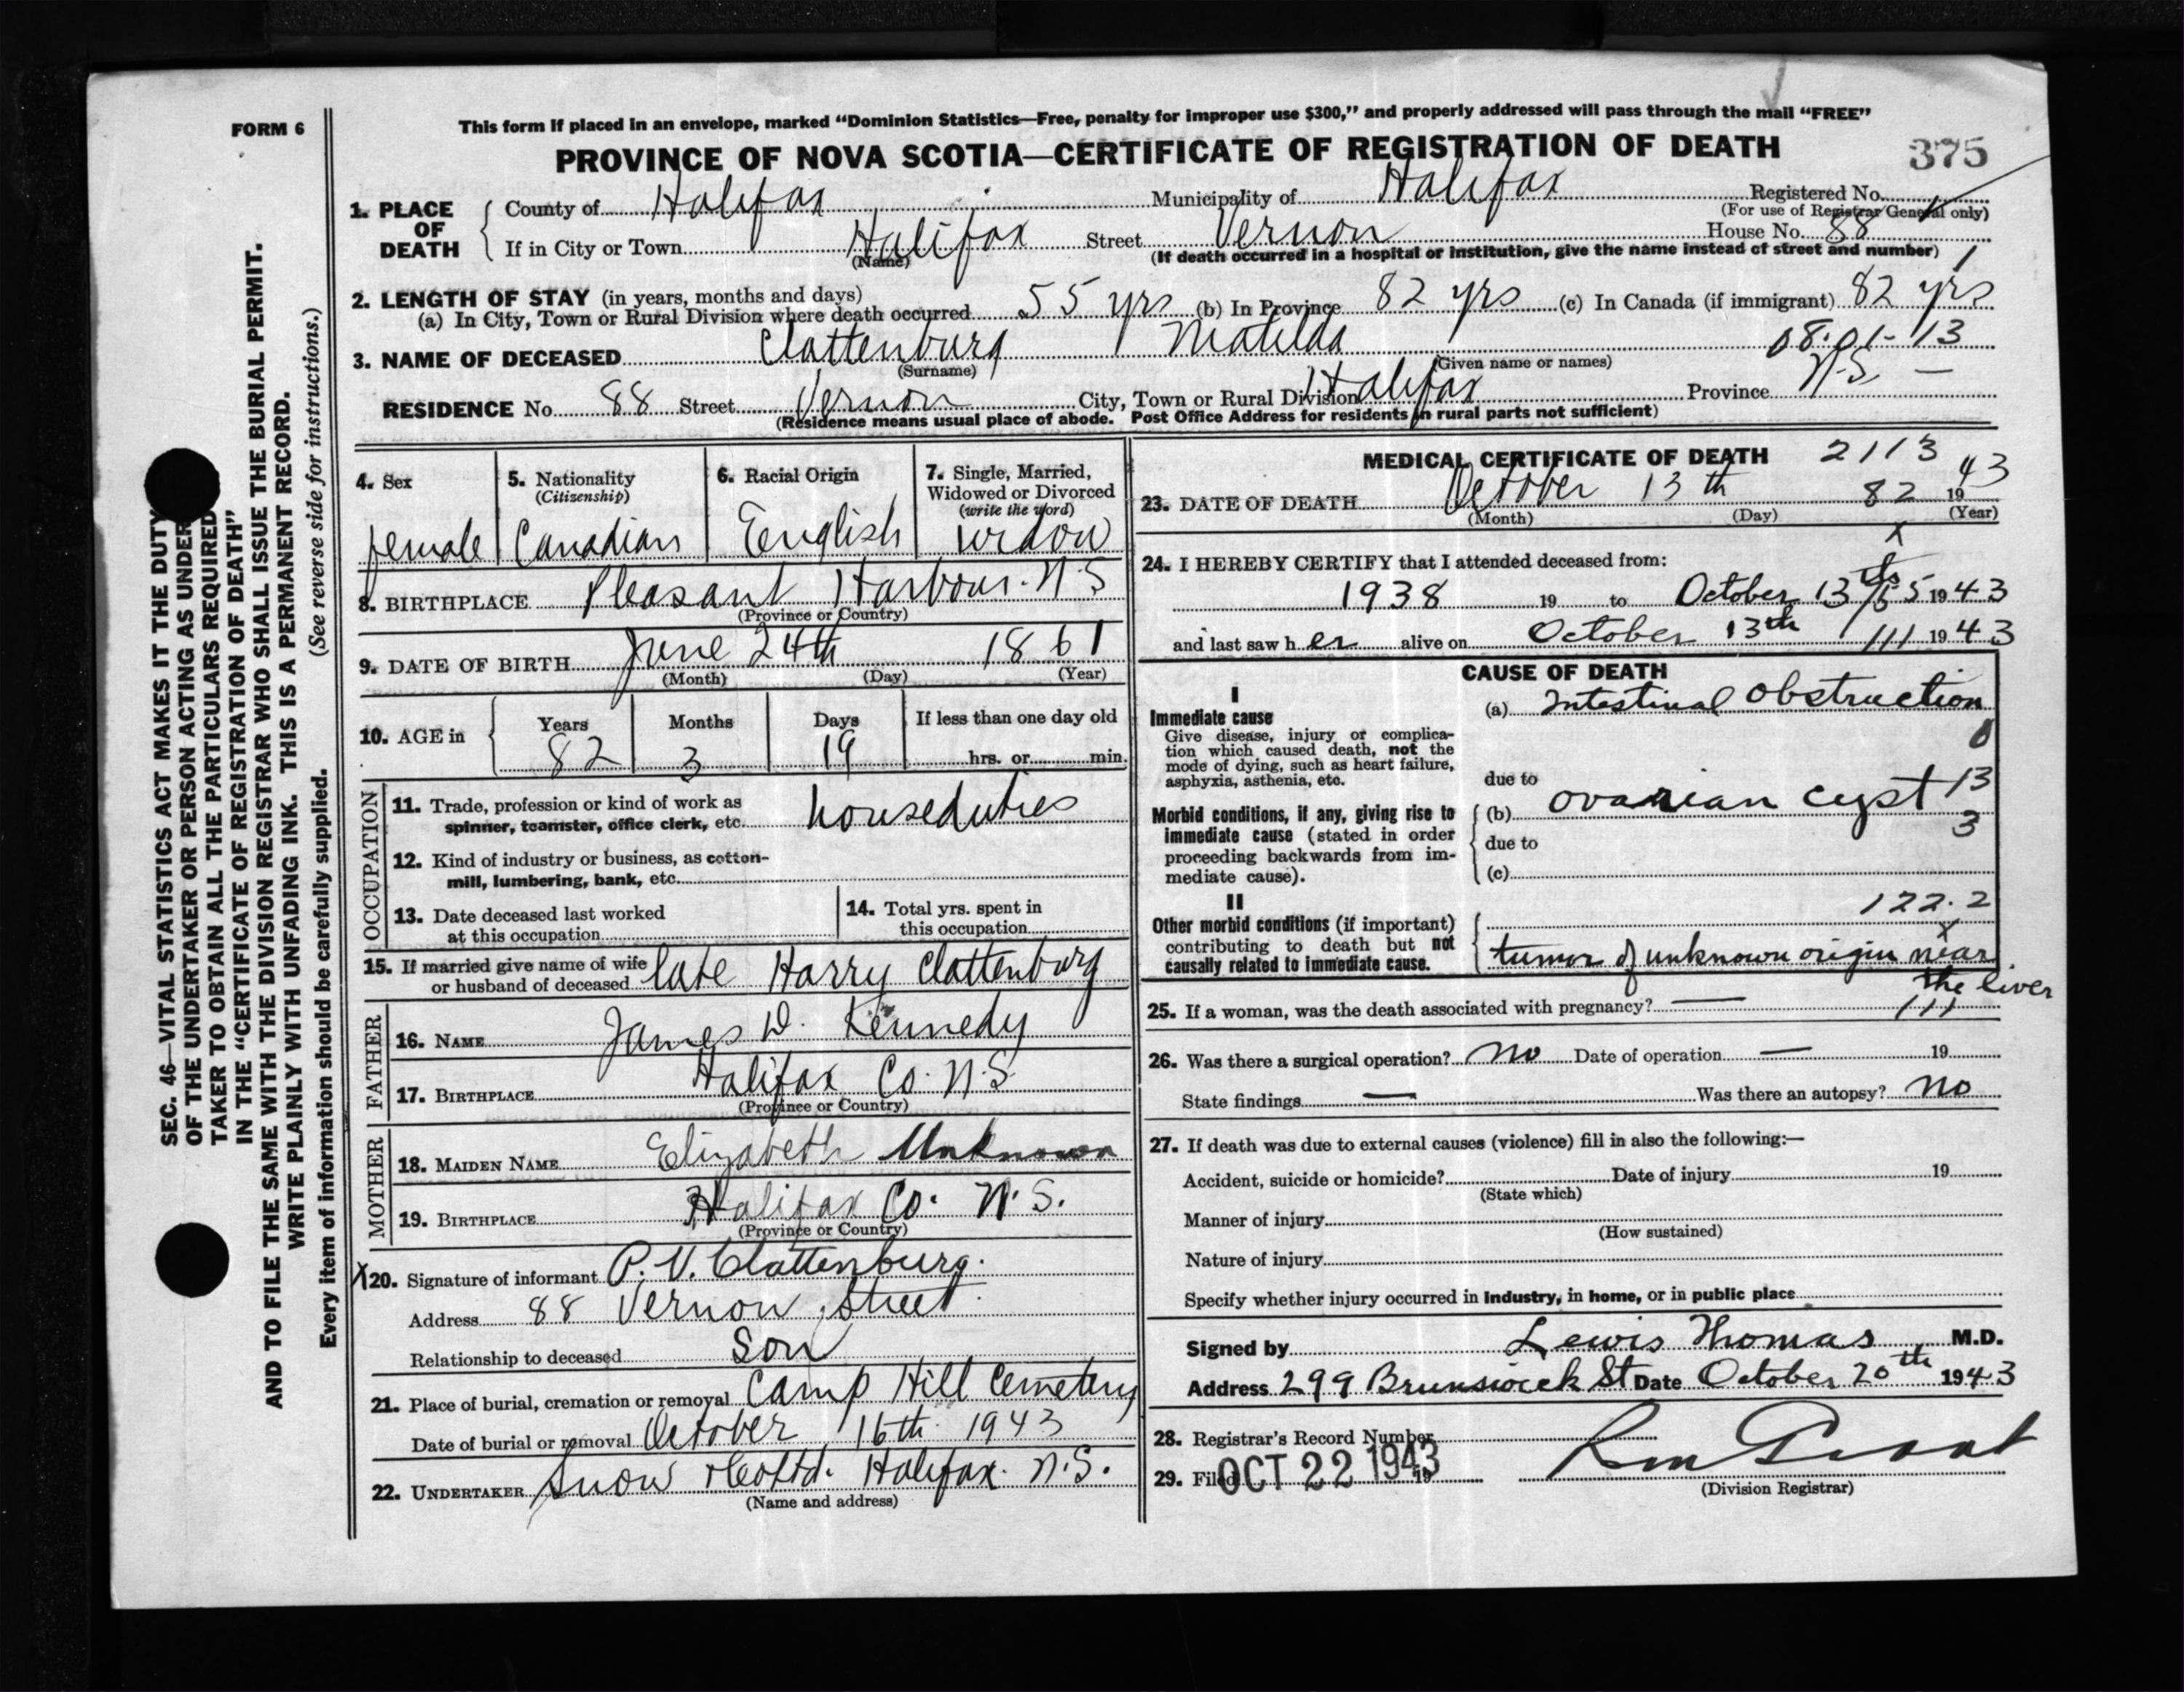 FORM 6
This form if placed in an envelope, marked "Dominion Statistics—Free, penalty for improper use $300," and properly addressed will pass through the mail "FREE"
PROVINCE OF NOVA SCOTIA—CERTIFICATE OF REGISTRATION OF DEATH
375
1. PLACE OF DEATH
County of Halifax Municipality of Halifax Registered No.
(For use of Registrar General only)
If in City or Town Halifax Street Vernon House No. 88
(Name) (If death occurred in a hospital or institution, give the name instead of street and number) 1
2. LENGTH OF STAY (in years, months and days)
(a) In City, Town or Rural Division where death occurred 55 yrs (b) In Province 82 yrs (c) In Canada (if immigrant) 82 yrs
3. NAME OF DECEASED Clattenburg Matilda 08.01-13
(Surname) (Given name or names)
RESIDENCE No. 88 Street Vernon City, Town or Rural Division Halifax Province N.S. —
(Residence means usual place of abode. Post Office Address for residents in rural parts not sufficient)
SEC. 46—VITAL STATISTICS ACT MAKES IT THE DUTY
OF THE UNDERTAKER OR PERSON ACTING AS UNDER
TAKER TO OBTAIN ALL THE PARTICULARS REQUIRED
IN THE "CERTIFICATE OF REGISTRATION OF DEATH"
AND TO FILE THE SAME WITH THE DIVISION REGISTRAR WHO SHALL ISSUE THE BURIAL PERMIT.
WRITE PLAINLY WITH UNFADING INK. THIS IS A PERMANENT RECORD.
Every item of information should be carefully supplied. (See reverse side for instructions.)
4. Sex
female
5. Nationality
(Citizenship)
Canadian
6. Racial Origin
English
7. Single, Married,
Widowed or Divorced
(write the word)
widow
8. BIRTHPLACE Pleasant Harbour. N S
(Province or Country)
9. DATE OF BIRTH June 24th 1861
(Month) (Day) (Year)
10. AGE in
Years Months Days If less than one day old
82 3 19 hrs. or min.
OCCUPATION
11. Trade, profession or kind of work as
spinner, teamster, office clerk, etc. houseduties
12. Kind of industry or business, as cotton-
mill, lumbering, bank, etc.
13. Date deceased last worked
at this occupation
14. Total yrs. spent in
this occupation
15. If married give name of wife
or husband of deceased late Harry Clattenburg
FATHER
16. NAME James D. Kennedy
17. BIRTHPLACE Halifax Co. N.S
(Province or Country)
MOTHER
18. MAIDEN NAME Elizabeth Unknown
19. BIRTHPLACE Halifax Co. N.S.
(Province or Country)
X 20. Signature of informant P. V. Clattenburg.
Address 88 Vernon Street
Relationship to deceased Son
21. Place of burial, cremation or removal Camp Hill Cemetery
Date of burial or removal October 16th 1943
22. UNDERTAKER Snow & Co Ltd. Halifax. N.S.
(Name and address)
MEDICAL CERTIFICATE OF DEATH 2113
23. DATE OF DEATH October 13th 82 1943
(Month) (Day) (Year)
x
24. I HEREBY CERTIFY that I attended deceased from:
1938 19 to October 13th 1943
and last saw her alive on October 13th 111 1943
CAUSE OF DEATH
I
Immediate cause
Give disease, injury or complica-
tion which caused death, not the
mode of dying, such as heart failure,
asphyxia, asthenia, etc.
(a) Intestinal Obstruction
due to
Morbid conditions, if any, giving rise to
immediate cause (stated in order
proceeding backwards from im-
mediate cause).
(b) ovarian cyst 13
due to 3
(c)
122.2
II
Other morbid conditions (if important)
contributing to death but not
causally related to immediate cause.
x
tumor of unknown origin near
the liver
25. If a woman, was the death associated with pregnancy? — 111
26. Was there a surgical operation? no Date of operation — 19
State findings — Was there an autopsy? no
27. If death was due to external causes (violence) fill in also the following:—
Accident, suicide or homicide? Date of injury 19
(State which)
Manner of injury
(How sustained)
Nature of injury
Specify whether injury occurred in industry, in home, or in public place
Signed by Lewis Thomas M.D.
Address 299 Brunswick St Date October 20th 1943
28. Registrar's Record Number
29. Filed OCT 22 1943 19
(Division Registrar)